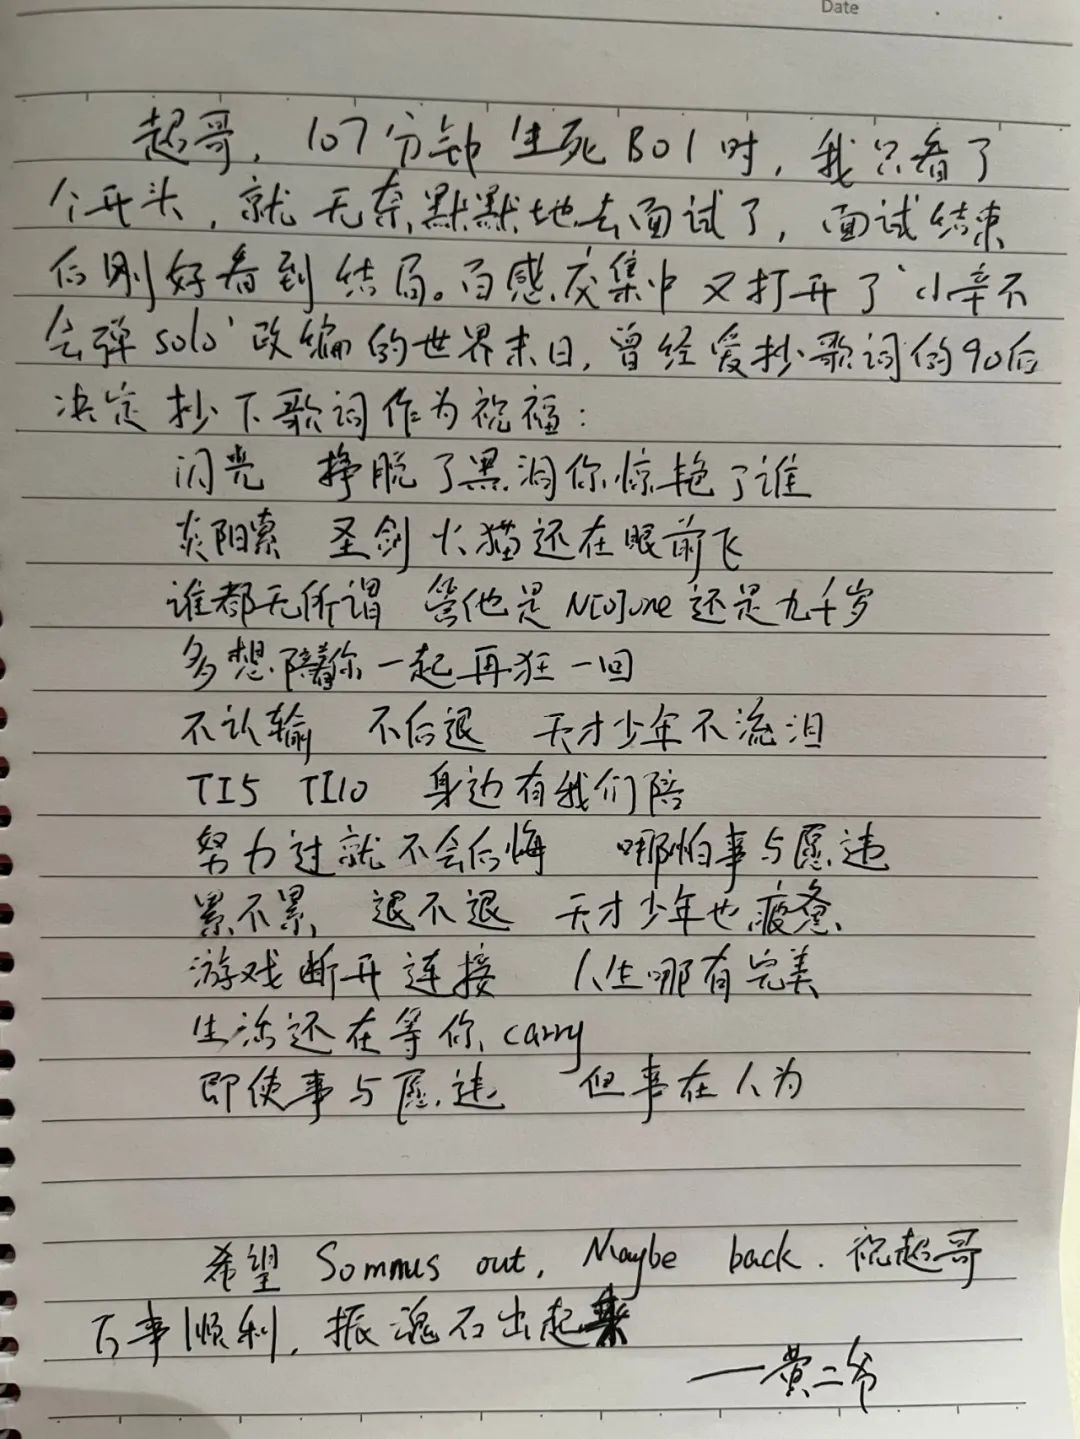 Date
超哥，107分钟生死BO1时，我只看了
个开头，就无奈默默地去面试了，面试结束
后刚好看到结局。百感交集中又打开了‘小辛不
会弹solo’改编的世界末日，曾经爱抄歌词的90后
决定抄下歌词作为祝福：
闪光 挣脱了黑洞你惊艳了谁
炎阳索 圣剑火猫还在眼前飞
谁都无所谓 管他是N[o]one还是九千岁
多想陪着你一起再狂一回
不认输 不后退 天才少年不流泪
TI5 TI10 身边有我们陪
努力过就不会后悔 哪怕事与愿违
累不累 退不退 天才少年也疲惫
游戏断开连接 人生哪有完美
生活还在等你carry
即使事与愿违 但事在人为
希望 Somnus out, Maybe back. 祝超哥
万事顺利，振魂石出起来
——黄二爷